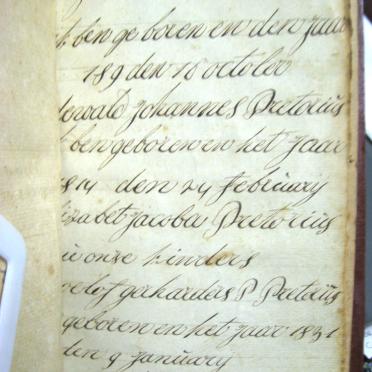 ben geboren en den Jaar
189 den 18 october
Johannes Pretorius
ben geboren en het Jaar
den 24 februarij
Jacoba Pretorius
onze kinders
gerhardus P Pretorius
geboren en het Jaar 1831
den 9 Januarij